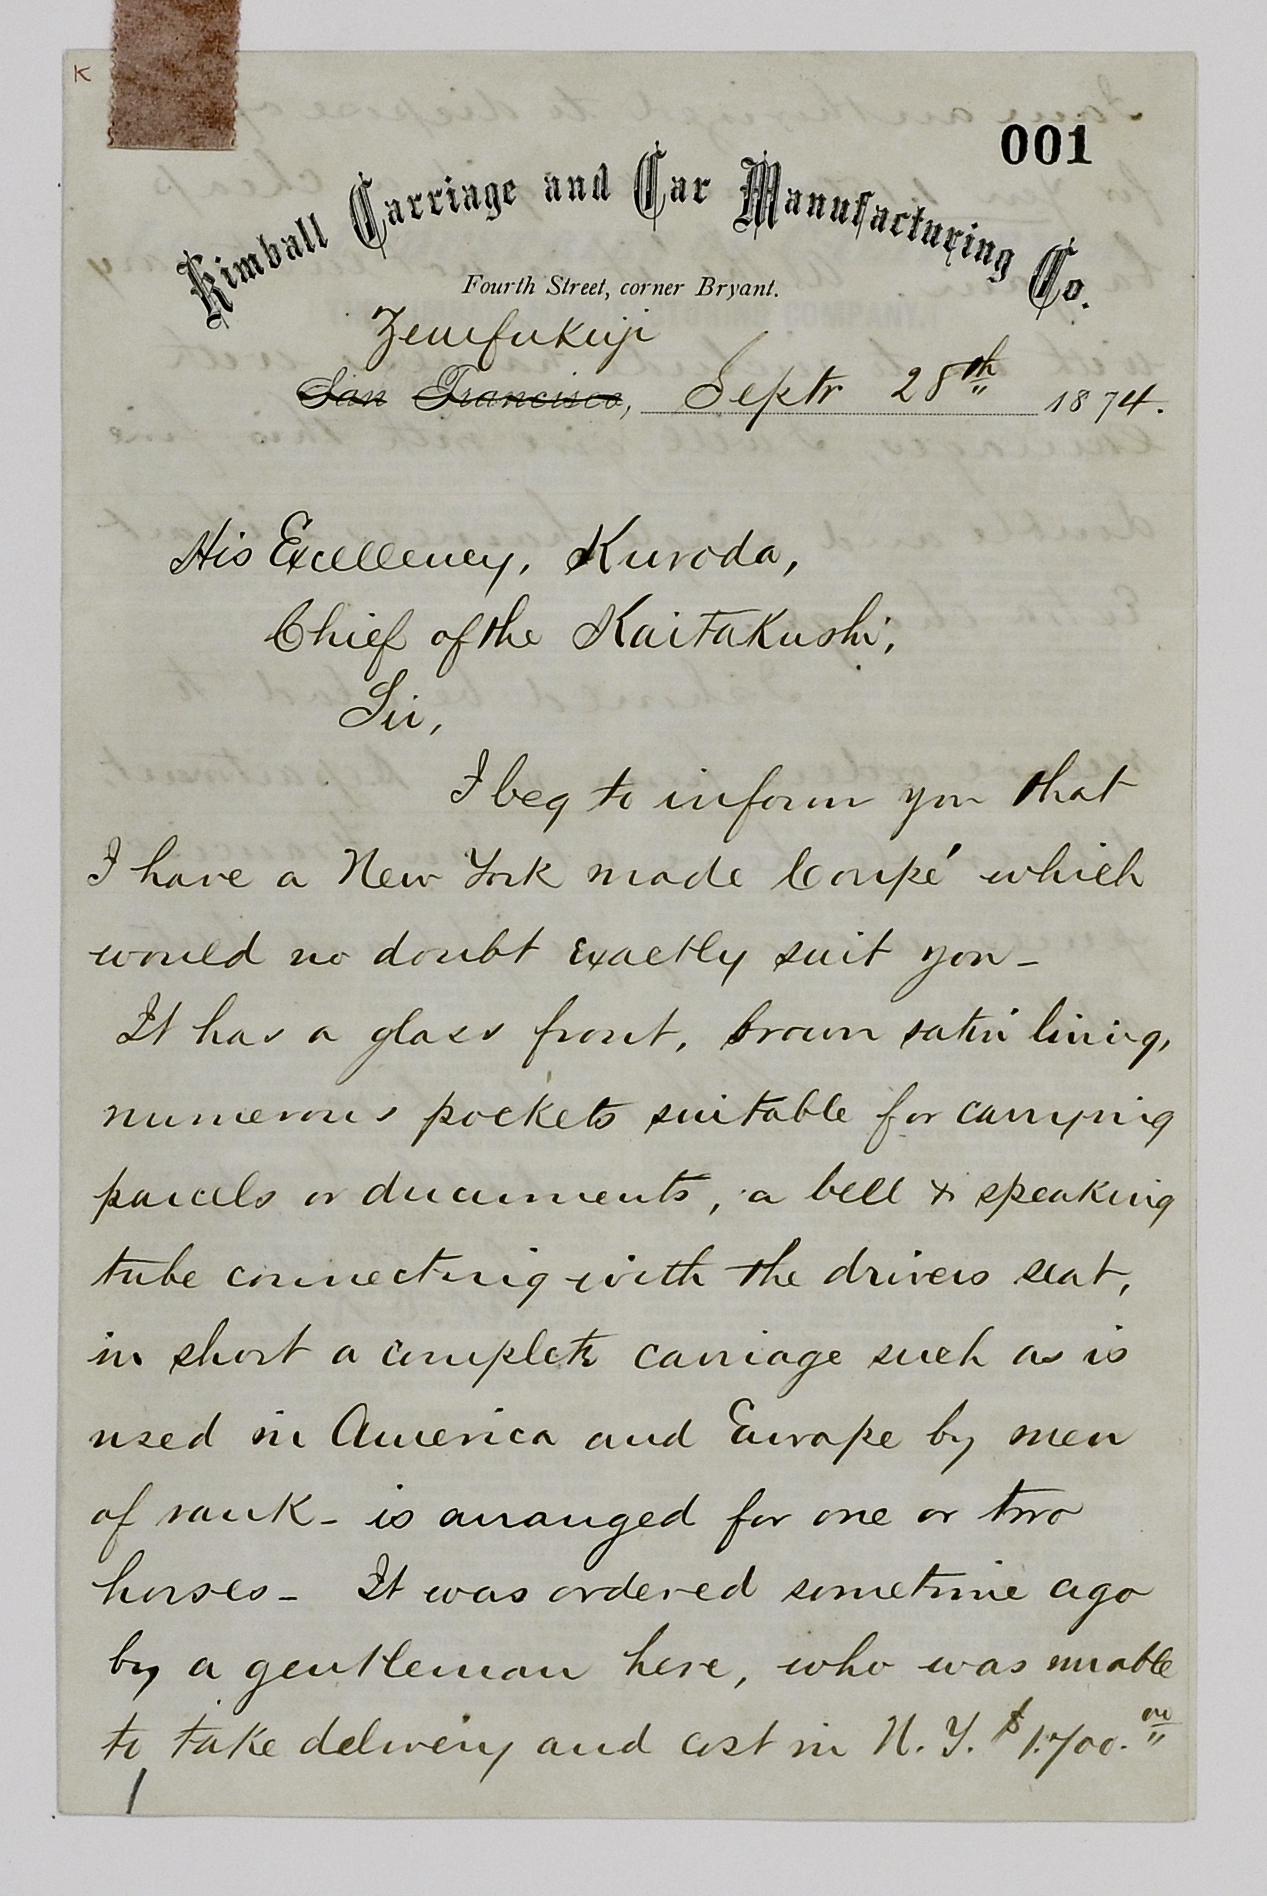 K
001
Kimball Carriage and Car Manufacturing Co.
Fourth Street, corner Bryant.
Zenifukuji
San Francisco, Septr 28th 1874.
His Excellency, Kuroda,
Chief of the Kaitakushi,
Sir,
I beg to inform you that
I have a New York made Coupé which
would no doubt exactly suit you -
It has a glass front, brown satin lining,
numerous pockets suitable for carrying
parcels or documents, a bell & speaking
tube connecting with the drivers seat,
in short a complete carriage such as is
used in America and Europe by men
of rank - is arranged for one or two
horses - It was ordered sometime ago
by a gentleman here, who was unable
to take delivery and cost in N. Y. $1,700.00
1